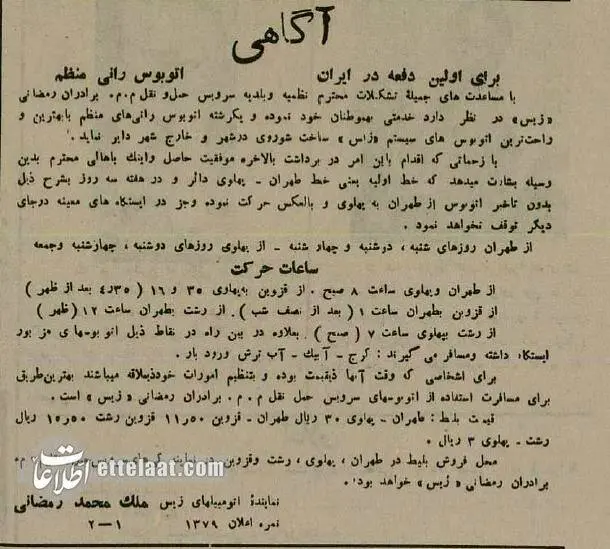 آگاهی
برای اولین دفعه در ایران اتوبوس رانی منظم
با مساعدت های جمیلهٔ تشکیلات محترم نظمیه وبلدیه سرویس حمل و نقل م.م. برادران رمضانی
«زیس» در نظر دارد خدمتی بهموطنان خود نموده و یکرشته اتوبوس رانی‌های منظم بابهترین و
راحت‌ترین اتوبوس های سیستم «زاس» ساخت شوروی درشهر و خارج شهر دایر نماید.
با زحماتی که اقدام باین امر در برداشت بالاخره موفقیت حاصل واینك باهالی محترم بدین
وسیله بشارت میدهد که خط اولیه یعنی خط طهران - پهلوی دائر و در هفته سه روز بشرح ذیل
بدون تاخیر اتوبوس از طهران به پهلوی و بالعکس حرکت نموده وجز در ایستگاه های معینه درجای
دیگر توقف نخواهد نمود.
از طهران روزهای شنبه، دوشنبه و چهارشنبه - از پهلوی روزهای دوشنبه، چهارشنبه وجمعه
ساعات حرکت
از طهران وپهلوی ساعت ۸ صبح. از قزوین به‌پهلوی ۳۵ و ۱۶ (۴٫۳۵ بعد از ظهر)
از قزوین بطهران ساعت ۱ (بعد از نصف شب). از رشت بطهران ساعت ۱۲ (ظهر)
از رشت بپهلوی ساعت ۷ (صبح) بعلاوه در بین راه در نقاط ذیل اتوبوسهای مزبور
ایستگاه داشته ومسافر می گیرند: کرج - آبیك - آب ترش ورود بار.
برای اشخاصی که وقت آنها ذیقیمت بوده و بتنظیم امورات خودذیعلاقه میباشند بهترین‌طریق
برای مسافرت استفاده از اتوبوسهای سرویس حمل نقل م.م. برادران رمضانی «زیس» است.
قیمت بلیط: طهران - پهلوی ۳۰ ریال طهران - قزوین ۱۱٫۵۰ قزوین رشت ۱۵٫۵۰ ریال
رشت - پهلوی ۳ ریال.
محل فروش بلیط در طهران، پهلوی، رشت وقزوین
برادران رمضانی «زیس» خواهد بود.
نمایندهٔ اتومبیلهای زیس ملك محمد رمضانی
نمره اعلان ۱۳۷۹ ۱-۲
اطلاعات ettelaat.com